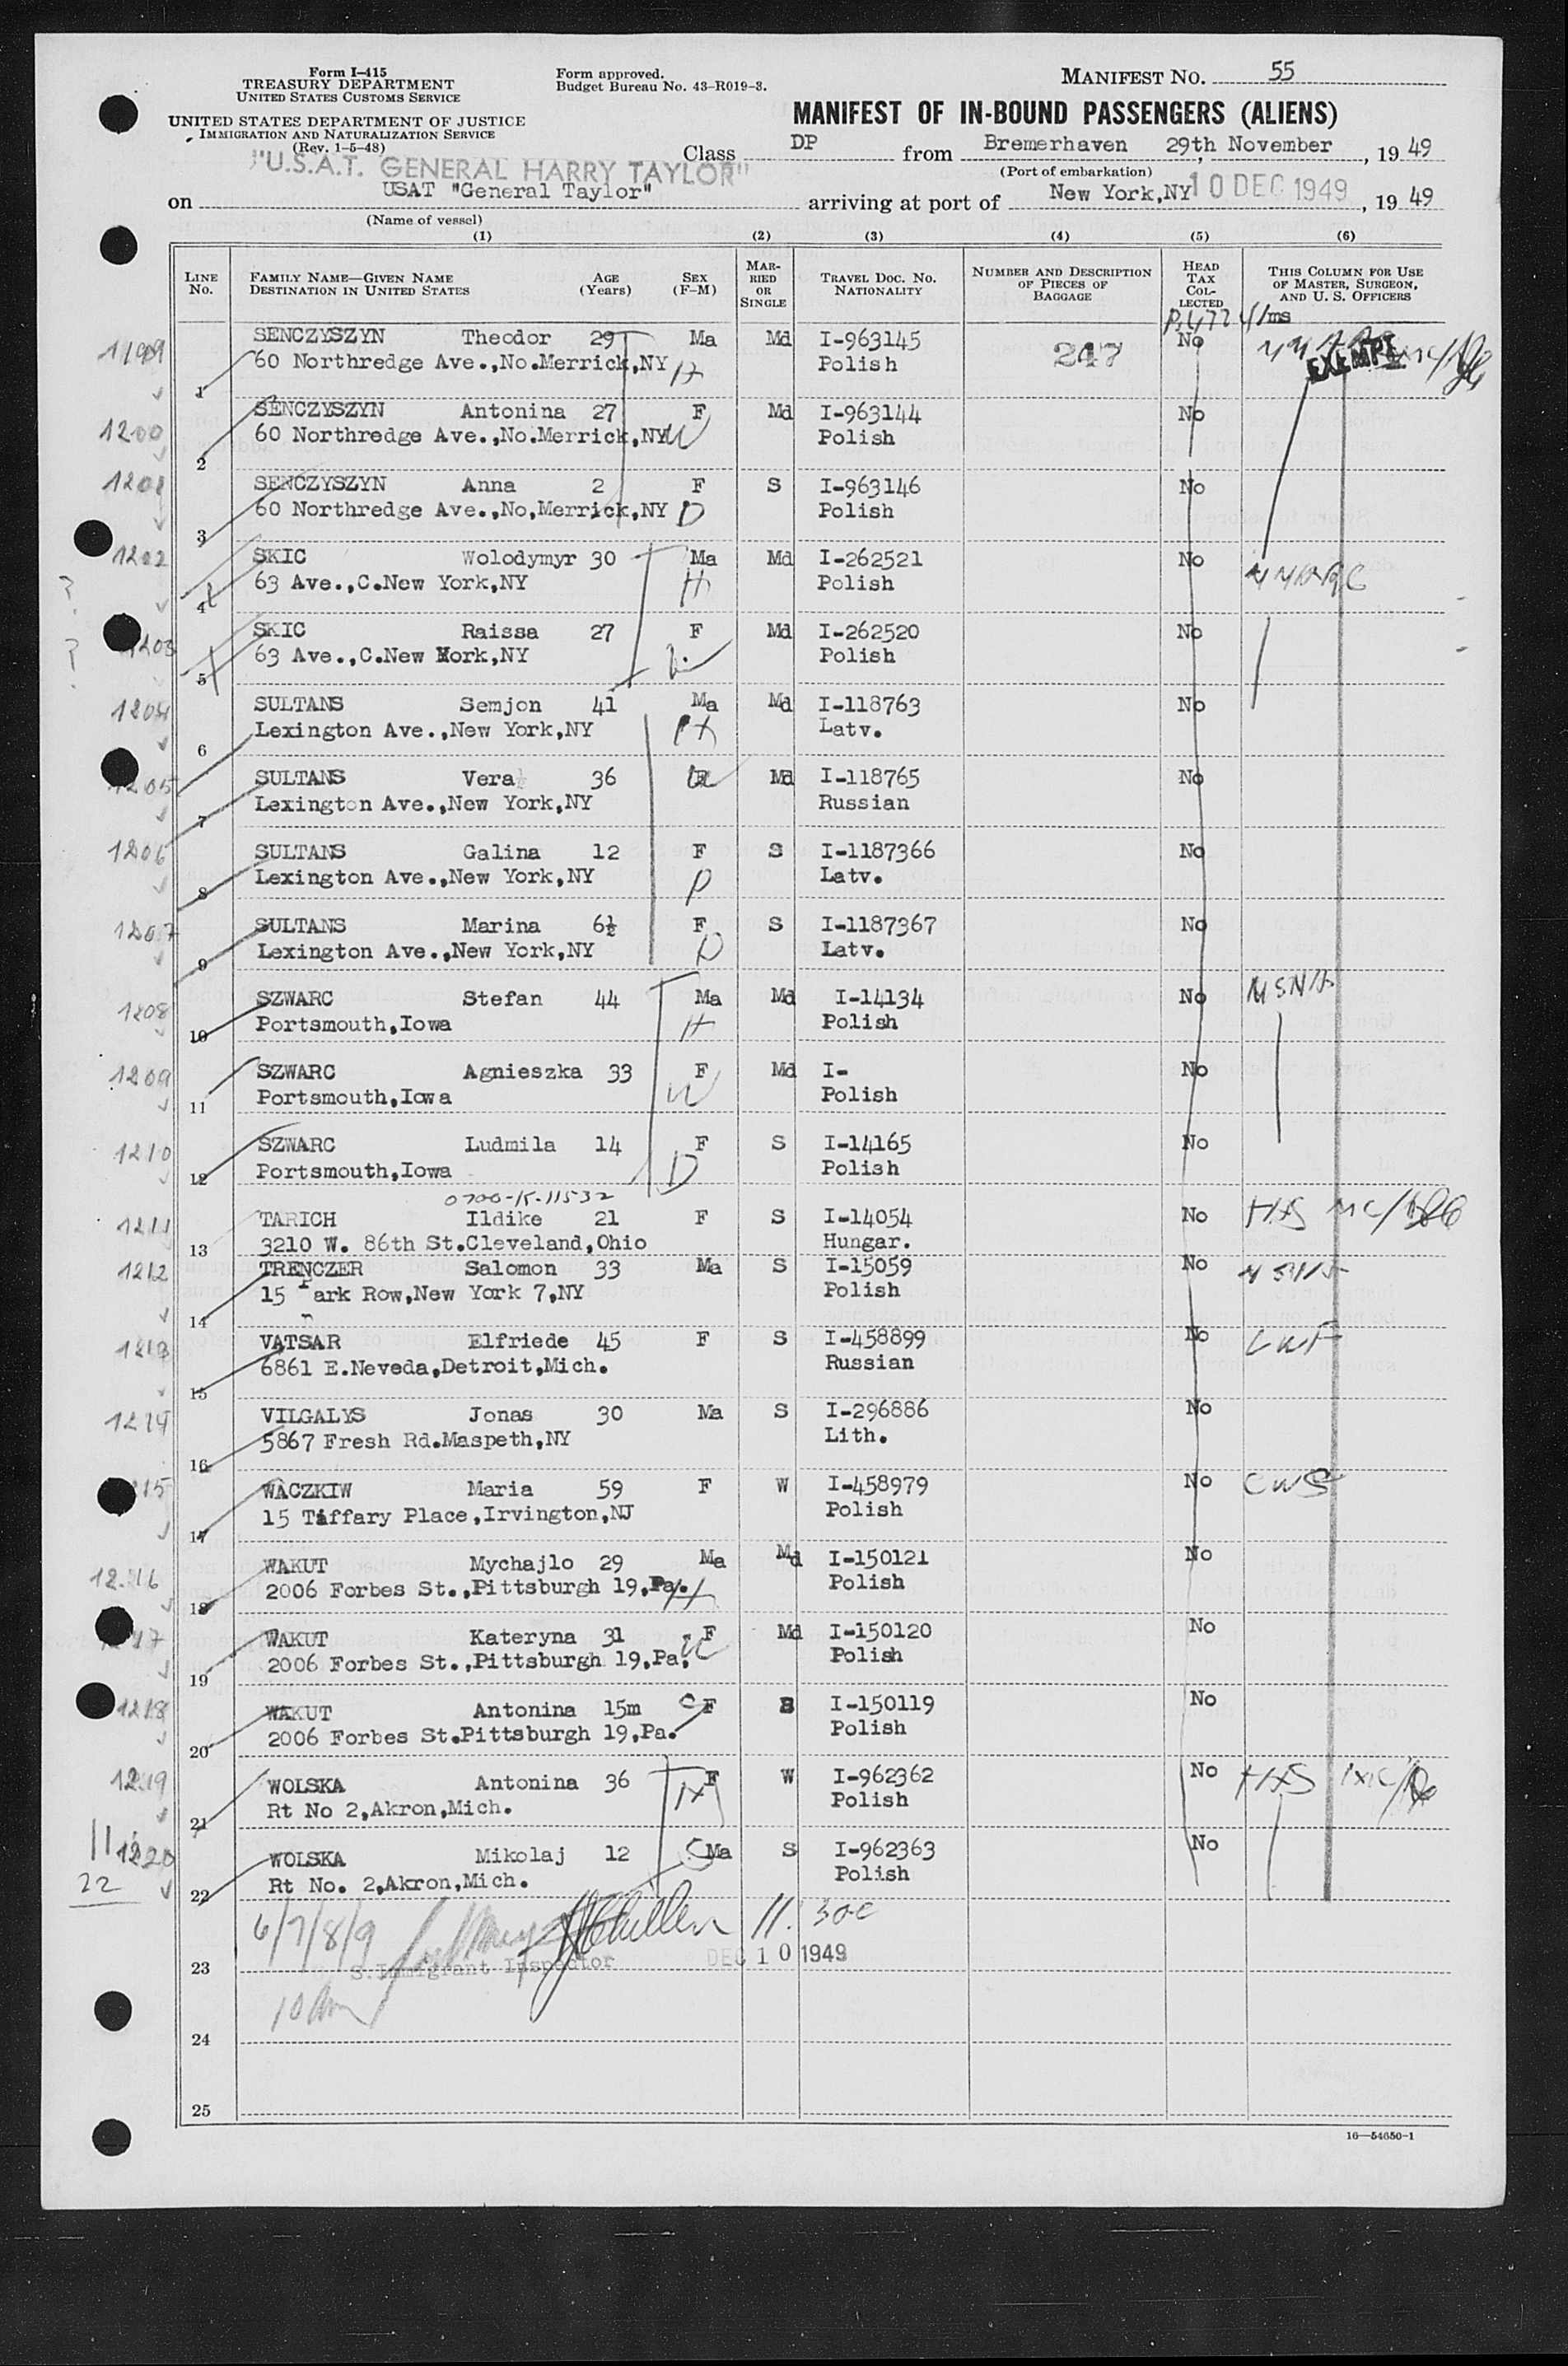 Form I-415
TREASURY DEPARTMENT
UNITED STATES CUSTOMS SERVICE
UNITED STATES DEPARTMENT OF JUSTICE
IMMIGRATION AND NATURALIZATION SERVICE
(Rev. 1-5-48)
Form approved.
Budget Bureau No. 43-R019-3.
MANIFEST NO. 55
MANIFEST OF IN-BOUND PASSENGERS (ALIENS)
Class DP from Bremerhaven 29th November, 1949
(Port of embarkation)
"U.S.A.T. GENERAL HARRY TAYLOR"
on USAT "General Taylor" arriving at port of New York,NY 10 DEC 1949, 1949
(Name of vessel)
(1) (2) (3) (4) (5) (6)
LINE No. FAMILY NAME—GIVEN NAME DESTINATION IN UNITED STATES AGE (Years) SEX (F-M) MARRIED OR SINGLE TRAVEL DOC. NO. NATIONALITY NUMBER AND DESCRIPTION OF PIECES OF BAGGAGE HEAD TAX COLLECTED THIS COLUMN FOR USE OF MASTER, SURGEON, AND U. S. OFFICERS
1199 SENCZYSZYN Theodor 29 Ma Md I-963145 247 No EXEMPT
1 60 Northredge Ave.,No.Merrick,NY H Polish
1200 SENCZYSZYN Antonina 27 F Md I-963144 No
2 60 Northredge Ave.,No.Merrick,NY W Polish
1201 SENCZYSZYN Anna 2 F S I-963146 No
3 60 Northredge Ave.,No,Merrick,NY D Polish
1202 SKIC Wolodymyr 30 Ma Md I-262521 No
? 4 63 Ave.,C.New York,NY H Polish
1203 SKIC Raissa 27 F Md I-262520 No
? 5 63 Ave.,C.New York,NY Polish
1204 SULTANS Semjon 41 Ma Md I-118763 No
6 Lexington Ave.,New York,NY H Latv.
1205 SULTANS Vera 36 Md I-118765 No
7 Lexington Ave.,New York,NY Russian
1206 SULTANS Galina 12 F S I-1187366 No
8 Lexington Ave.,New York,NY D Latv.
1207 SULTANS Marina 6½ F S I-1187367 No
9 Lexington Ave.,New York,NY D Latv.
1208 SZWARC Stefan 44 Ma Md I-14134 No
10 Portsmouth,Iowa H Polish
1209 SZWARC Agnieszka 33 F Md I- No
11 Portsmouth,Iowa W Polish
1210 SZWARC Ludmila 14 F S I-14165 No
12 Portsmouth,Iowa D Polish
0700-K-11532
1211 TARICH Ildike 21 F S I-14054 No HAS
13 3210 W. 86th St.Cleveland,Ohio Hungar.
1212 TRENCZER Salomon 33 Ma S I-15059 No
14 15 Park Row,New York 7,NY Polish
1213 VATSAR Elfriede 45 F S I-458899 No LWF
15 6861 E.Neveda,Detroit,Mich. Russian
1214 VILGALYS Jonas 30 Ma S I-296886 No
16 5867 Fresh Rd.Maspeth,NY Lith.
1215 WACZKIW Maria 59 F W I-458979 No CWS
17 15 Tiffary Place,Irvington,NJ Polish
1216 WAKUT Mychajlo 29 Ma Md I-150121 No
18 2006 Forbes St.,Pittsburgh 19,Pa. H Polish
1217 WAKUT Kateryna 31 F Md I-150120 No
19 2006 Forbes St.,Pittsburgh 19,Pa, W Polish
1218 WAKUT Antonina 15m C F S I-150119 No
20 2006 Forbes St.Pittsburgh 19,Pa. Polish
1219 WOLSKA Antonina 36 F W I-962362 No HAS
21 Rt No 2,Akron,Mich. Polish
1220 WOLSKA Mikolaj 12 Ma S I-962363 No
22 22 Rt No. 2,Akron,Mich. Polish
6/7/8/9
23 S.Immigrant Inspector DEC 10 1949
24
25
16—54650-1